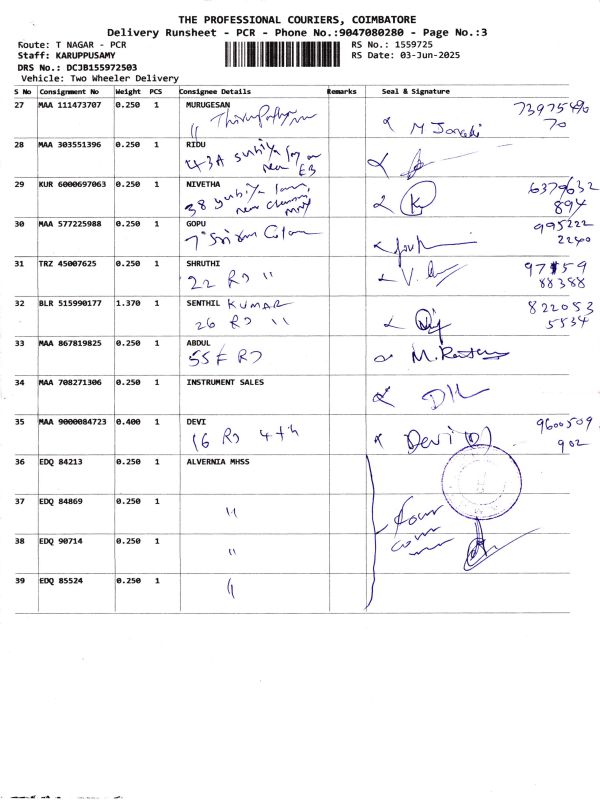 THE PROFESSIONAL COURIERS, COIMBATORE
Delivery Runsheet - PCR - Phone No.:9047080280 - Page No.:3
Route: T NAGAR - PCR RS No.: 1559725
Staff: KARUPPUSAMY RS Date: 03-Jun-2025
DRS No.: DCJB155972503
Vehicle: Two Wheeler Delivery
S No Consignment No Weight PCS Consignee Details Remarks Seal & Signature
27 MAA 111473707 0.250 1 MURUGESAN
M Janaki 70
28 MAA 303551396 0.250 1 RIDU
43A
near EB
29 KUR 6000697063 0.250 1 NIVETHA 6379632
38 894
near
30 MAA 577225988 0.250 1 GOPU 995222
7 2240
31 TRZ 45007625 0.250 1 SHRUTHI
22 RD " 88388
32 BLR 515990177 1.370 1 SENTHIL KUMAR 822053
26 RD " 5534
33 MAA 867819825 0.250 1 ABDUL
55 F RD M.
34 MAA 708271306 0.250 1 INSTRUMENT SALES
35 MAA 9000084723 0.400 1 DEVI 9600509
16 RD 4th Devi (D) 902
36 EDQ 84213 0.250 1 ALVERNIA MHSS
37 EDQ 84869 0.250 1
" Four
38 EDQ 90714 0.250 1
"
39 EDQ 85524 0.250 1
"